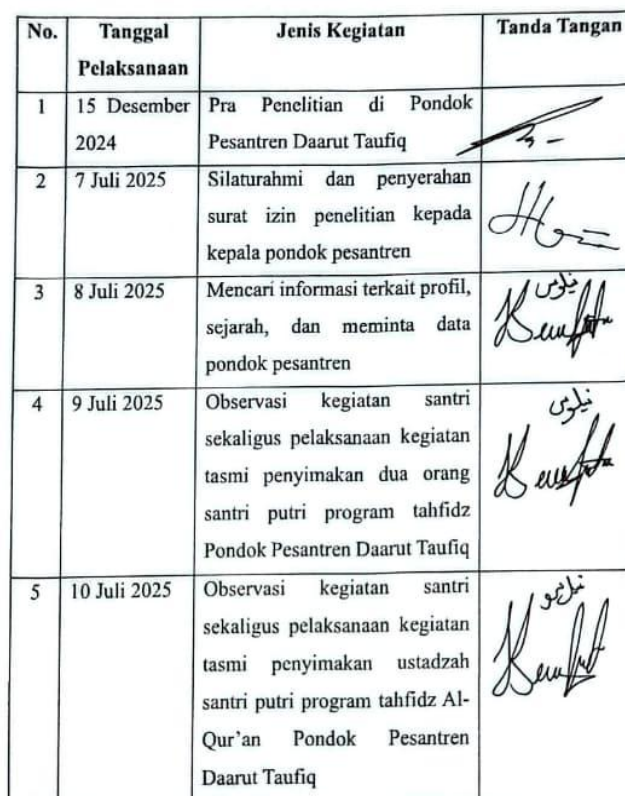 No. Tanggal Pelaksanaan Jenis Kegiatan Tanda Tangan
1 15 Desember Pra Penelitian di Pondok
2024 Pesantren Daarut Taufiq
2 7 Juli 2025 Silaturahmi dan penyerahan
surat izin penelitian kepada
kepala pondok pesantren
3 8 Juli 2025 Mencari informasi terkait profil,
sejarah, dan meminta data
pondok pesantren
4 9 Juli 2025 Observasi kegiatan santri
sekaligus pelaksanaan kegiatan
tasmi penyimakan dua orang
santri putri program tahfidz
Pondok Pesantren Daarut Taufiq
5 10 Juli 2025 Observasi kegiatan santri
sekaligus pelaksanaan kegiatan
tasmi penyimakan ustadzah
santri putri program tahfidz Al-
Qur'an Pondok Pesantren
Daarut Taufiq